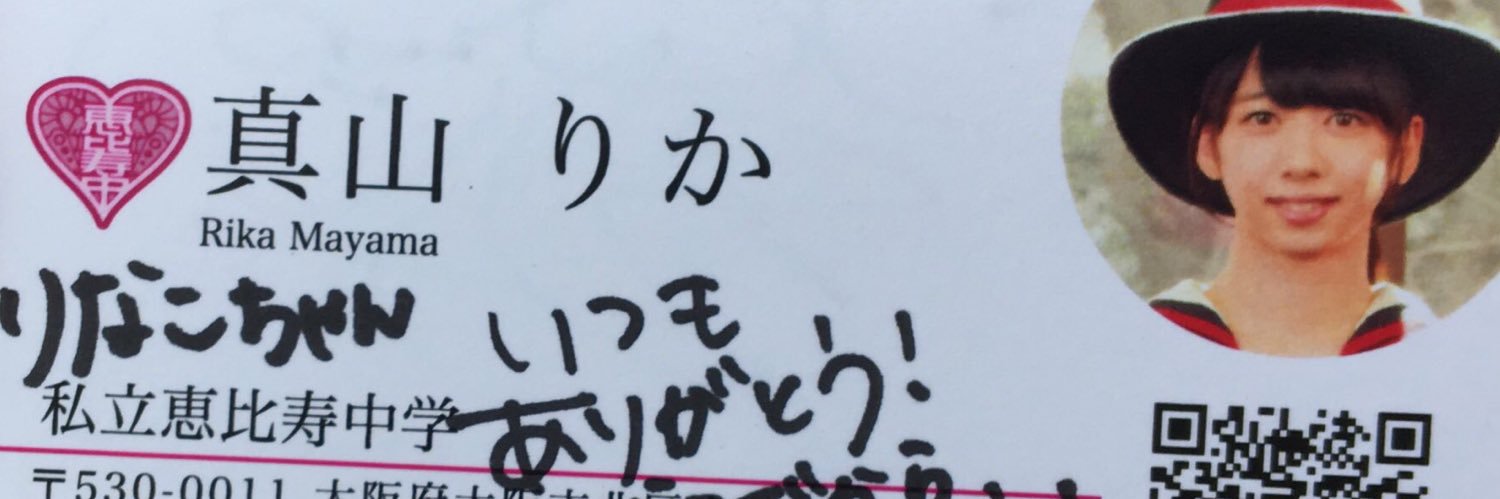 恵比寿中
真山 りか
Rika Mayama
りなこちゃん いつも
ありがとう!
私立恵比寿中学
〒530-0011 大阪府大阪市北区